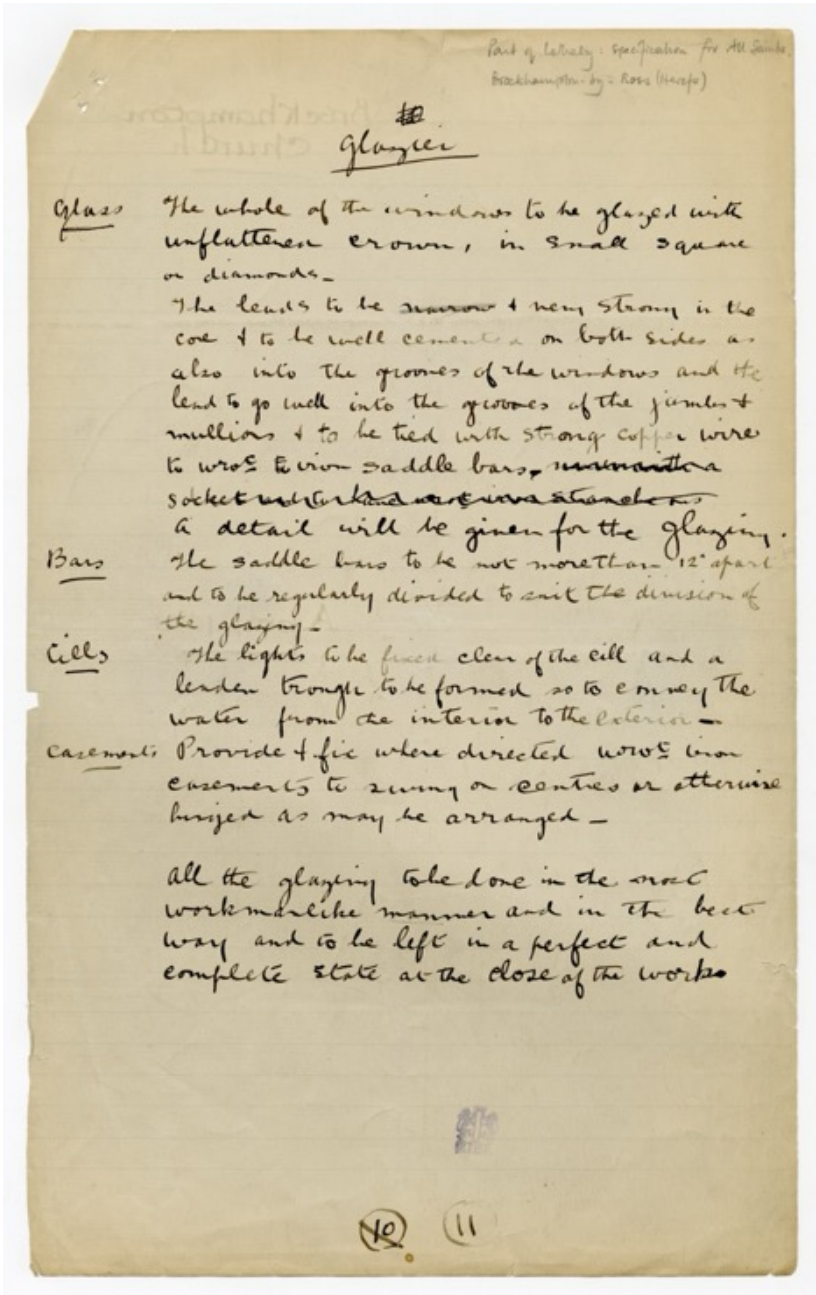 Part of Lethaby: specification for All Saints,
Brockhampton-by-Ross (Herefs)
Brockhampton
Church
Glazier
Glass The whole of the windows to be glazed with
unflattened crown, in small square
or diamonds -
The leads to be narrow & very strong in the
core & to be well cemented on both sides as
also into the grooves of the windows and the
lead to go well into the grooves of the jambs &
mullions & to be tied with strong copper wire
to wrot iron saddle bars,
socket
A detail will be given for the glazing.
Bars The saddle bars to be not more than 12" apart
and to be regularly divided to suit the division of
the glazing -
Cills The lights to be fixed clear of the cill and a
leaden trough to be formed so to convey the
water from the interior to the exterior -
Casements Provide & fix where directed wrot iron
casements to swing on centres or otherwise
hinged as may be arranged -
All the glazing to be done in the most
workmanlike manner and in the best
way and to be left in a perfect and
complete state at the close of the works
10 11